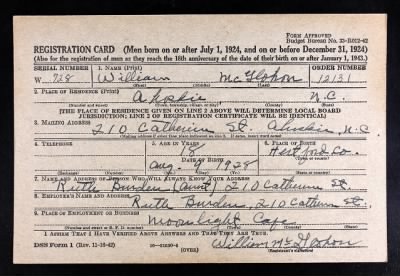 FORM APPROVED
Budget Bureau No. 33-R012-42
REGISTRATION CARD (Men born on or after July 1, 1924, and on or before December 31, 1924)
(Also for the registration of men as they reach the 18th anniversary of the date of their birth on or after January 1, 1943.)
SERIAL NUMBER 1. NAME (Print) ORDER NUMBER
W 728 William McGlohon 12131
2. PLACE OF RESIDENCE (Print)
Ahoskie N.C.
[THE PLACE OF RESIDENCE GIVEN ON LINE 2 ABOVE WILL DETERMINE LOCAL BOARD
JURISDICTION; LINE 2 OF REGISTRATION CERTIFICATE WILL BE IDENTICAL]
3. MAILING ADDRESS
210 Catherine St. Ahoskie, N.C.
4. TELEPHONE 5. AGE IN YEARS 6. PLACE OF BIRTH
18 Hertford Co.
DATE OF BIRTH
Aug.
7. NAME AND ADDRESS OF PERSON WHO WILL ALWAYS KNOW YOUR ADDRESS
Ruth Burden (aunt) 210 Catherine St.
8. EMPLOYER'S NAME AND ADDRESS
Ruth Burden, 210 Catherine St.
9. PLACE OF EMPLOYMENT OR BUSINESS
Moonlight Cafe
I AFFIRM THAT I HAVE VERIFIED ABOVE ANSWERS AND THAT THEY ARE TRUE.
DSS Form 1 (Rev. 11-16-42) (OVER) William McGlohon